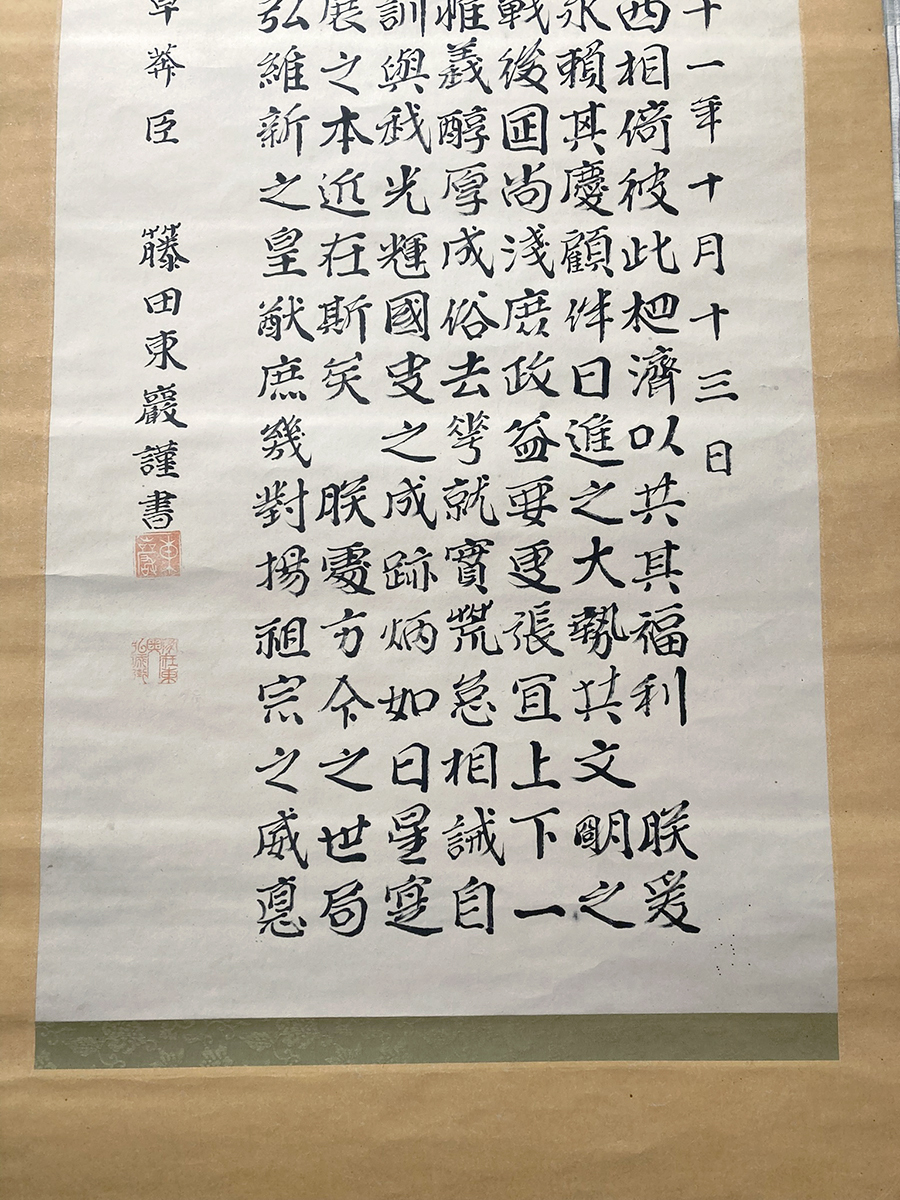 十一年十月十三日
西相倚彼此相濟以共其福利 朕爰
永賴其慶顧件日進之大勢共文明之
戰後囶尚淺庶政益要更張宜上下一
惟義醇厚成俗去華就實荒怠相誡自
訓與我光輝國史之成跡炳如日星寔
展之本近在斯矣 朕處方今之世局
弘維新之皇猷庶幾對揚祖宗之威悳
草莽臣 藤田東巖謹書
東巖